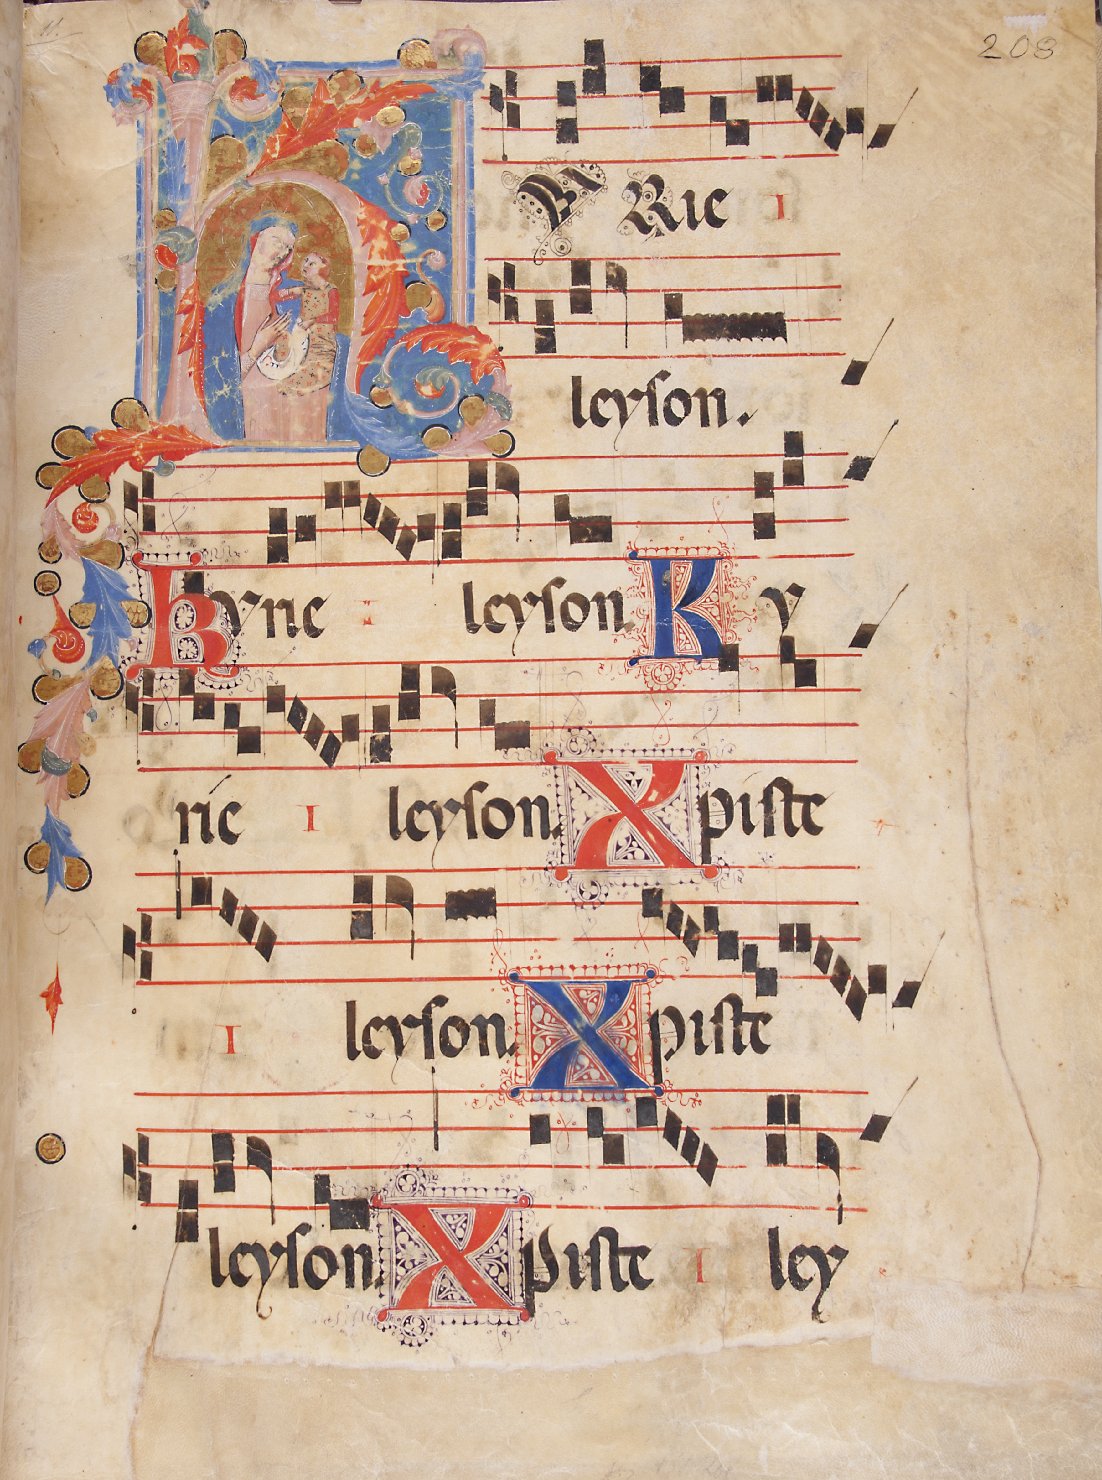 11.
208
KYRie ı
leyson.
Kyrie ı leyson. Ky
rie ı leyson. Xpiste
ı leyson. Xpiste
leyson. Xpiste ı ley